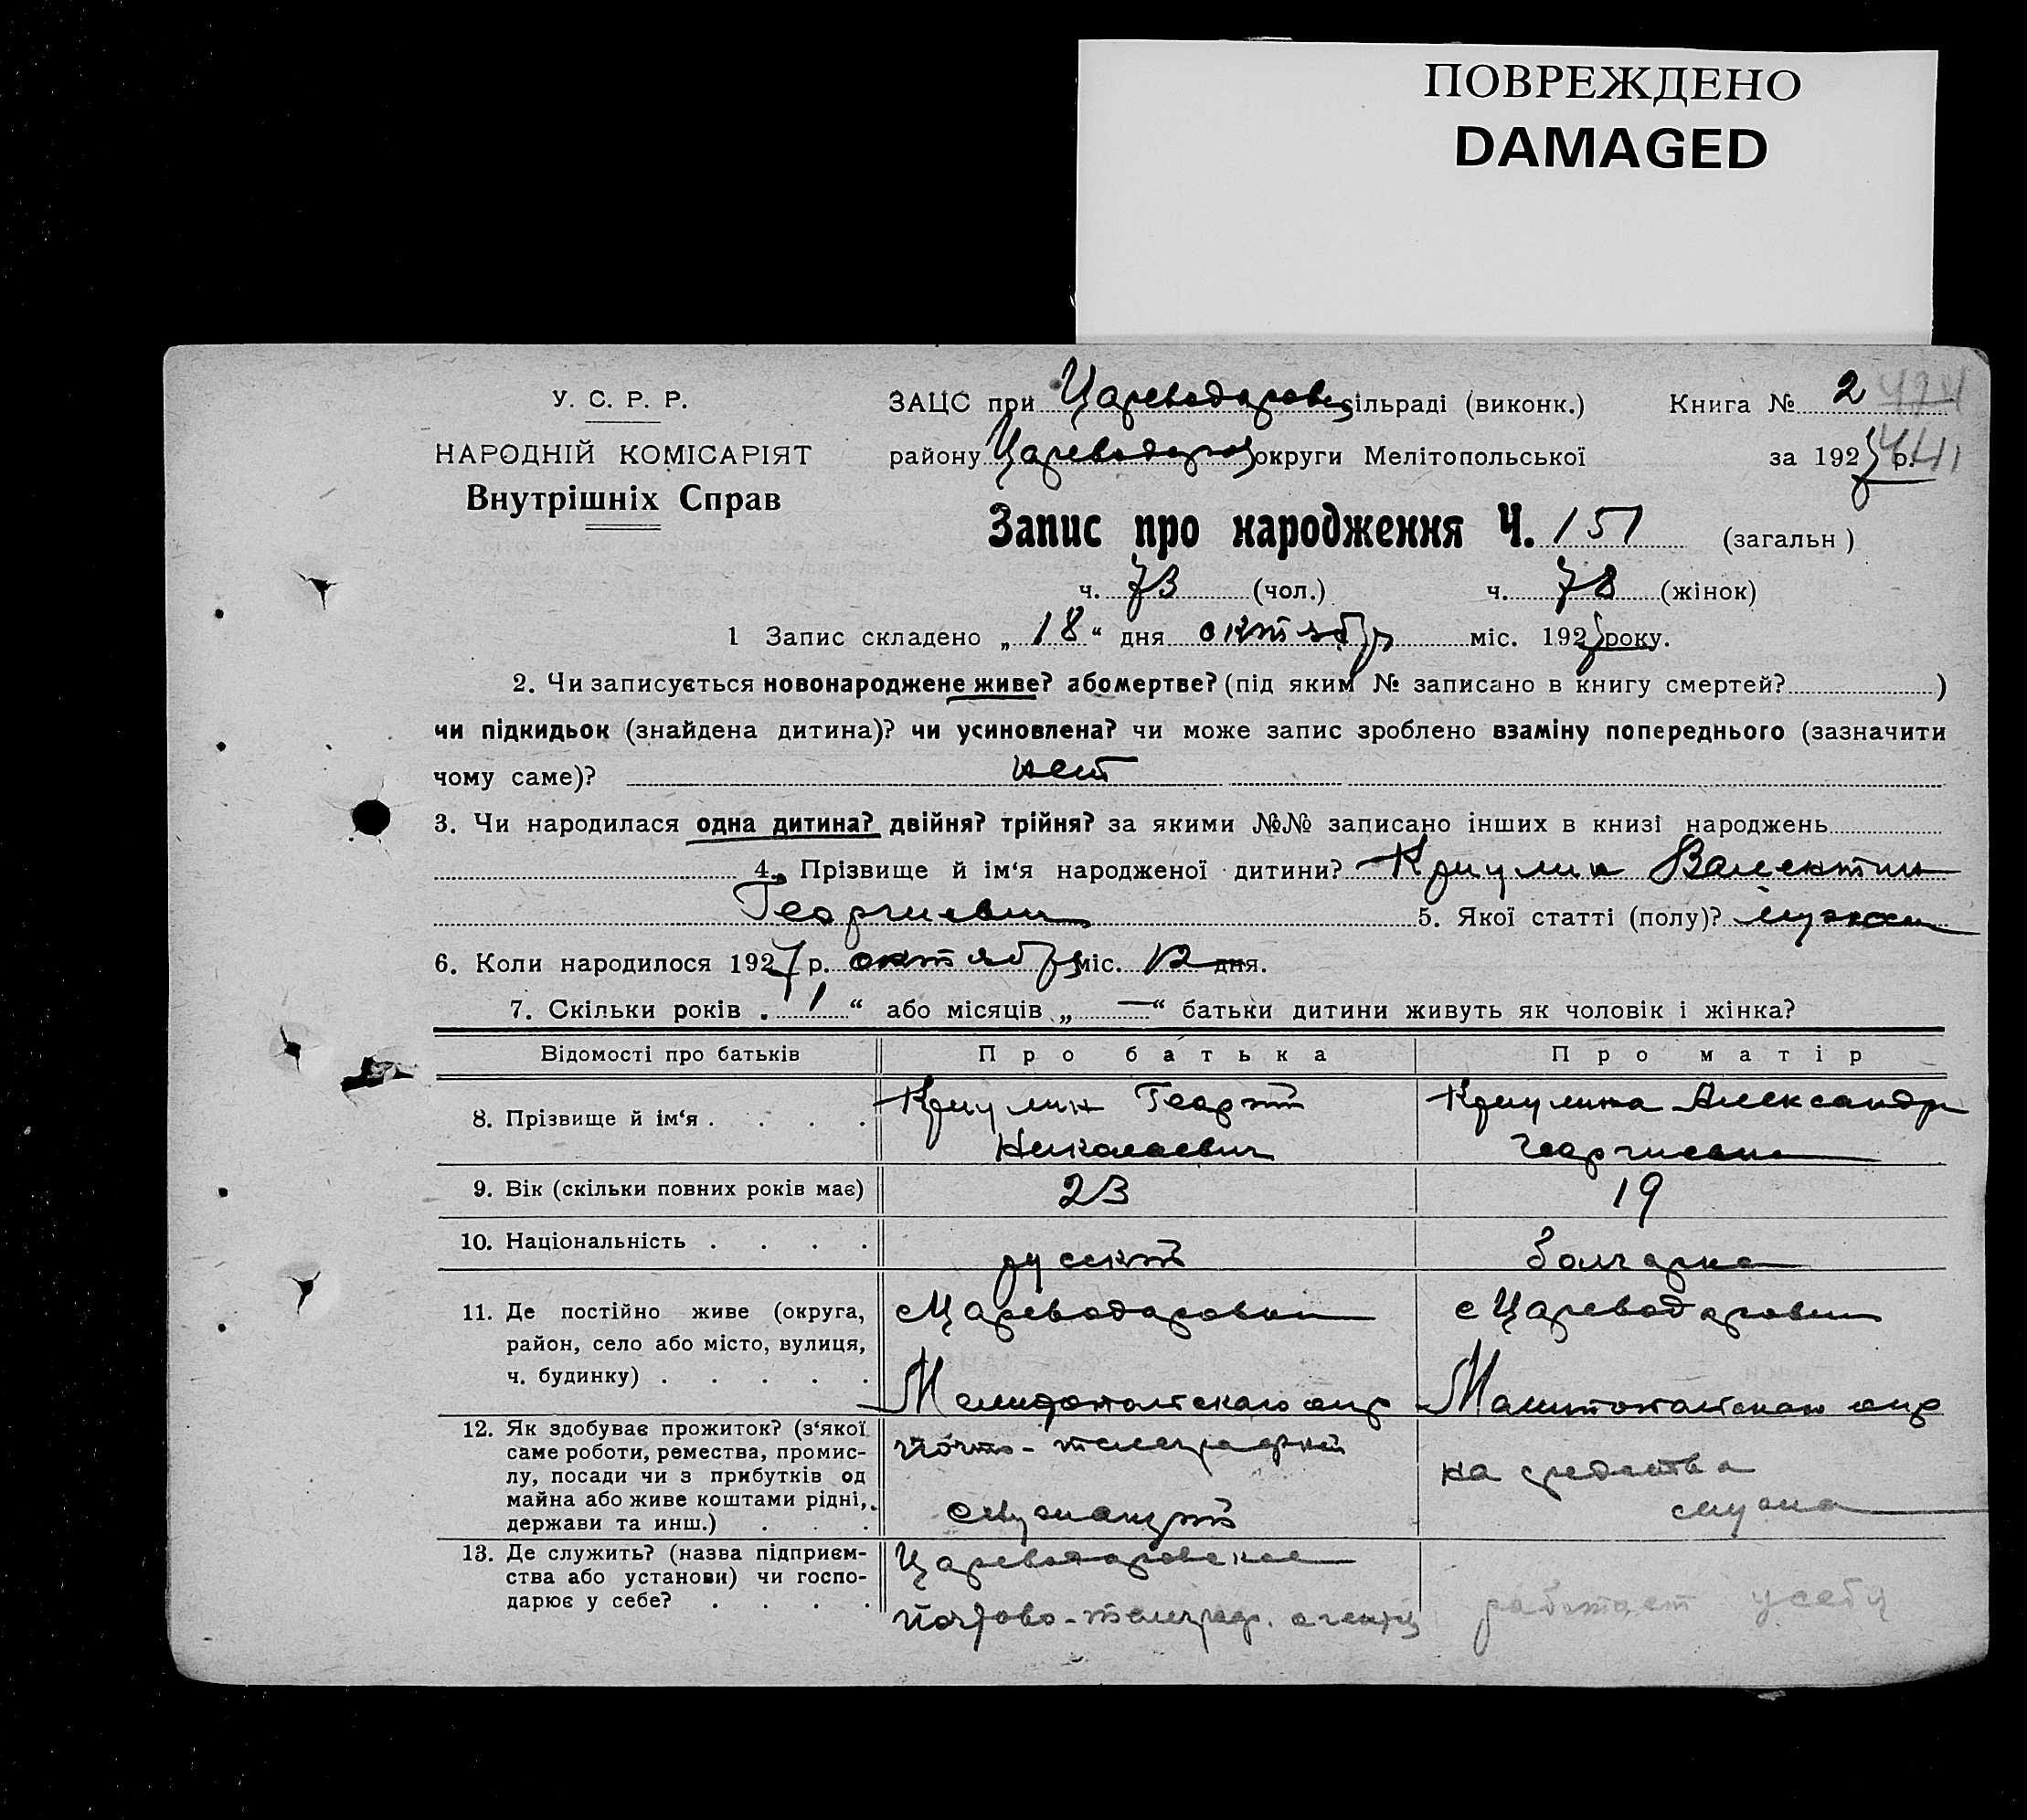 ПОВРЕЖДЕНО
DAMAGED
У. С. Р. Р.
НАРОДНІЙ КОМІСАРІЯТ
Внутрішніх Справ
ЗАЦС при Цареводаров сільраді (виконк.) Книга № 2 474
району Цареводаров округи Мелітопольської за 1927 р. 441
Запис про народження Ч. 151 (загальн)
ч. 73 (чол.) ч. 78 (жінок)
1 Запис складено „ 18 “ дня октябр міс. 1927 року.
2. Чи записується новонароджене живе? або мертве? (під яким № записано в книгу смертей? )
чи підкидьок (знайдена дитина)? чи усиновлена? чи може запис зроблено взаміну попереднього (зазначити
чому саме)? нет
3. Чи народилася одна дитина? двійня? трійня? за якими №№ записано інших в книзі народжень
4. Прізвище й ім‘я народженої дитини? Криулин Валентин
Георгиевич 5. Якої статті (полу)? мужск
6. Коли народилося 1927 р. октября міс. 12 дня.
7. Скільки років „ 1 “ або місяців „ — “ батьки дитини живуть як чоловік і жінка?
Відомості про батьків Про батька Про матір
8. Прізвище й ім‘я . . . . Криулин Георгий Криулина Александр
Николаевич Георгиевна
9. Вік (скільки повних років має) 23 19
10. Національність . . . . русский болгарка
11. Де постійно живе (округа, с Цареводаровки с Цареводаровки
район, село або місто, вулиця,
ч. будинку) . . . . . Мелитопольского окр Мелитопольского окр
12. Як здобуває прожиток? (з‘якої Почто-телеграфный
саме роботи, ремества, промис-
лу, посади чи з прибутків од на средства
майна або живе коштами рідні, мужа
держави та инш.) . . . служащий
13. Де служить? (назва підприєм- Цареводаровское
ства або установи) чи госпо-
дарює у себе? . . . . Почтово-телеграф. агентс работает у себя